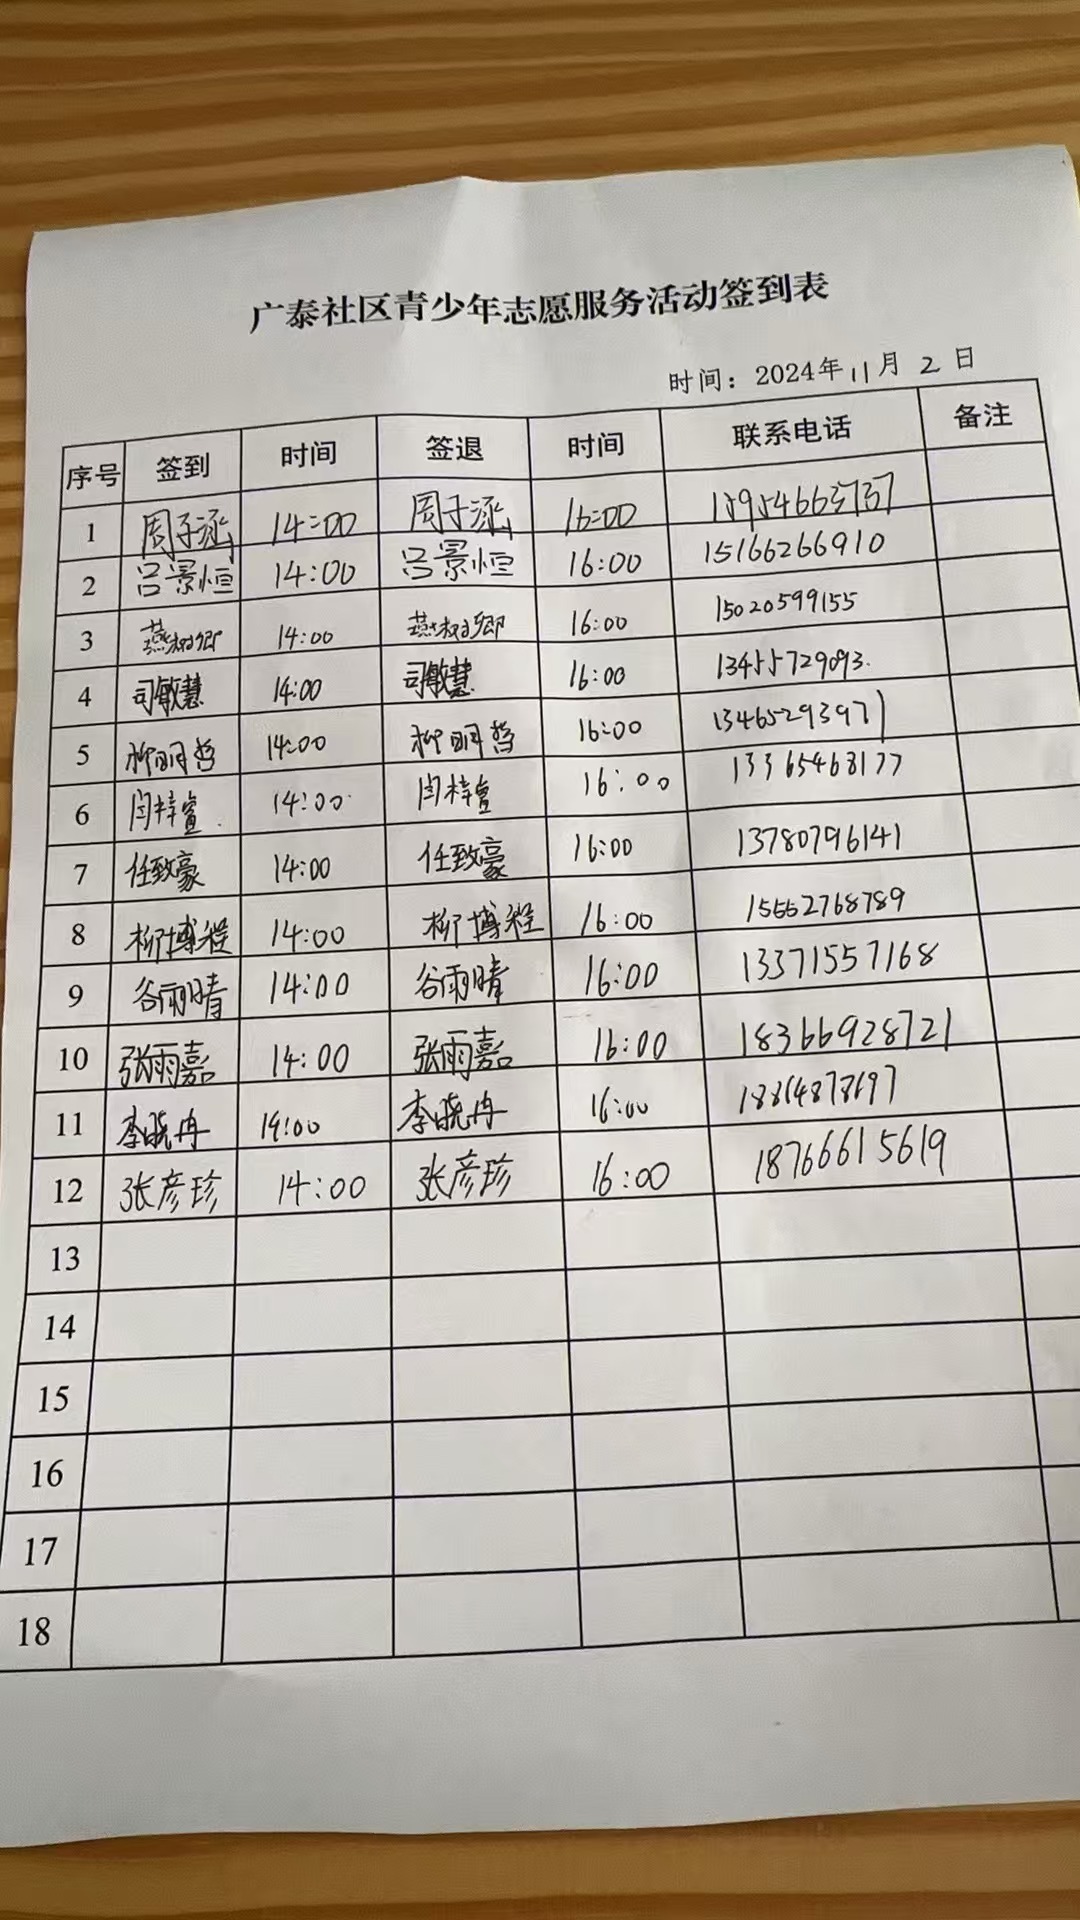 广泰社区青少年志愿服务活动签到表
时间：2024年11月2日
序号 签到 时间 签退 时间 联系电话 备注
1 周子涵 14:00 周子涵 16:00 15954663737
2 吕景恒 14:00 吕景恒 16:00 15166266910
3 燕树乡 14:00 燕树乡 16:00 15020599155
4 司敏慧 14:00 司敏慧 16:00 13455729093.
5 柳明哲 14:00 柳明哲 16:00 13465293971
6 闫梓萱 14:00 闫梓萱 16:00 13365468177
7 任致豪 14:00 任致豪 16:00 13780796141
8 柳博程 14:00 柳博程 16:00 15552768789
9 谷雨晴 14:00 谷雨晴 16:00 13371557168
10 张雨嘉 14:00 张雨嘉 16:00 18366928721
11 李晓冉 14:00 李晓冉 16:00
12 张彦珍 14:00 张彦珍 16:00 18766615619
13
14
15
16
17
18